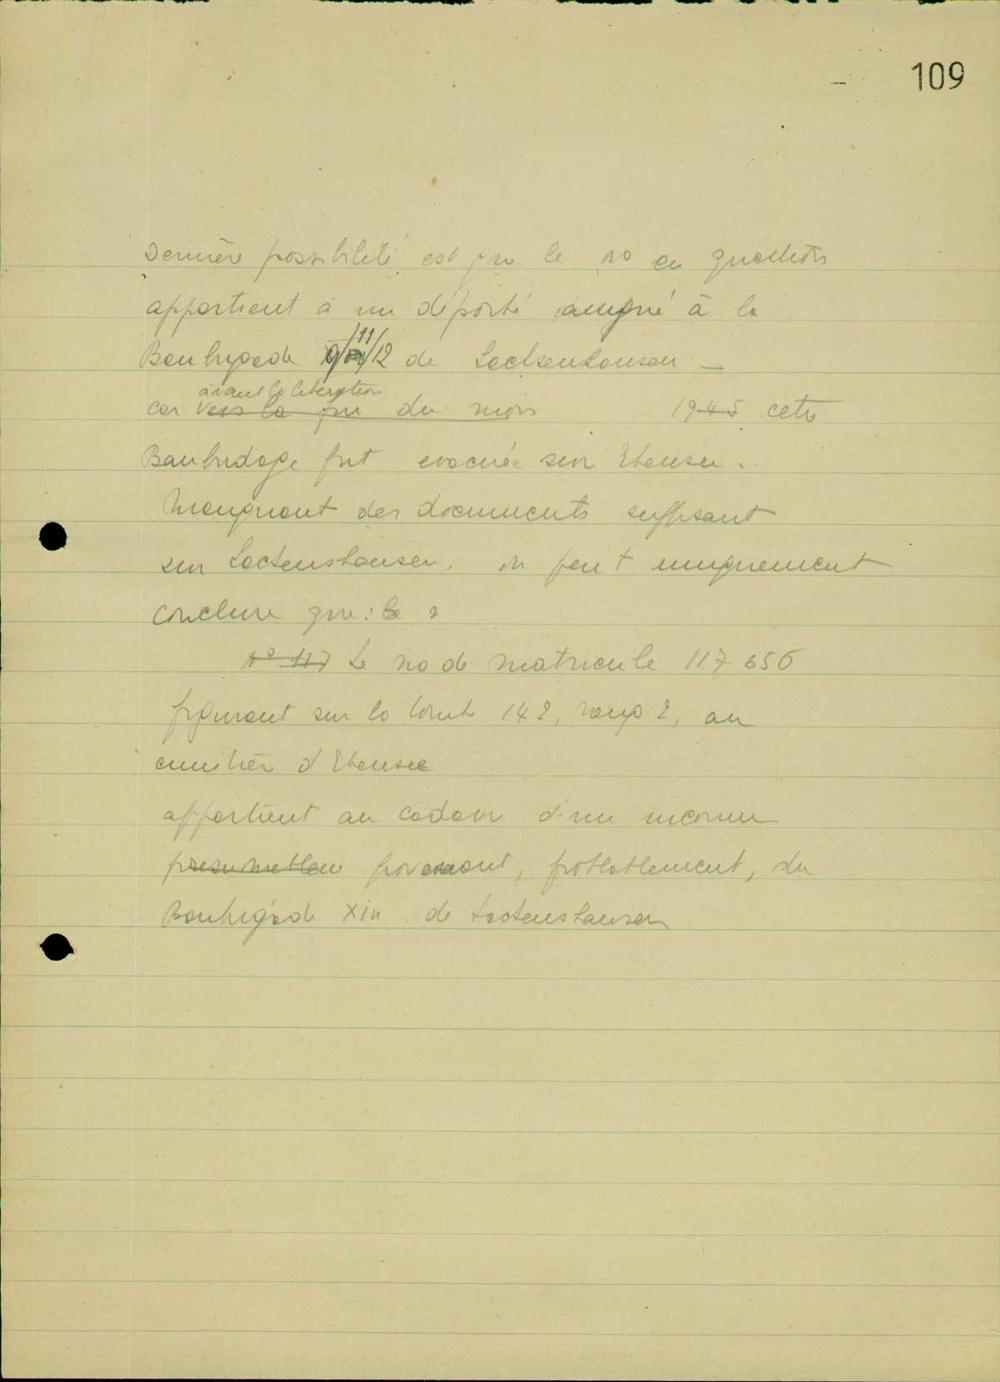 109
Dernière possibilité est que le no en question
appartient à un déporté assigné à la
Baubrigade 9/11/12 de Sachsenhausen –
avant la libération
car vers la fin du mois 1945 cette
Baubridage fut evacuée sur Ebensee.
Manquant des documents suffisant
sur Sachsenshausen, on peut uniquement
conclure que: le
No 117 Le no de matricule 117 656
figurant sur la tombe 142, rang 2, au
cimitièr d'Ebensee
appartient au cadavre d'un inconnu
provenant, probablement, du
Baubrigade XIII de Sachsenshausen